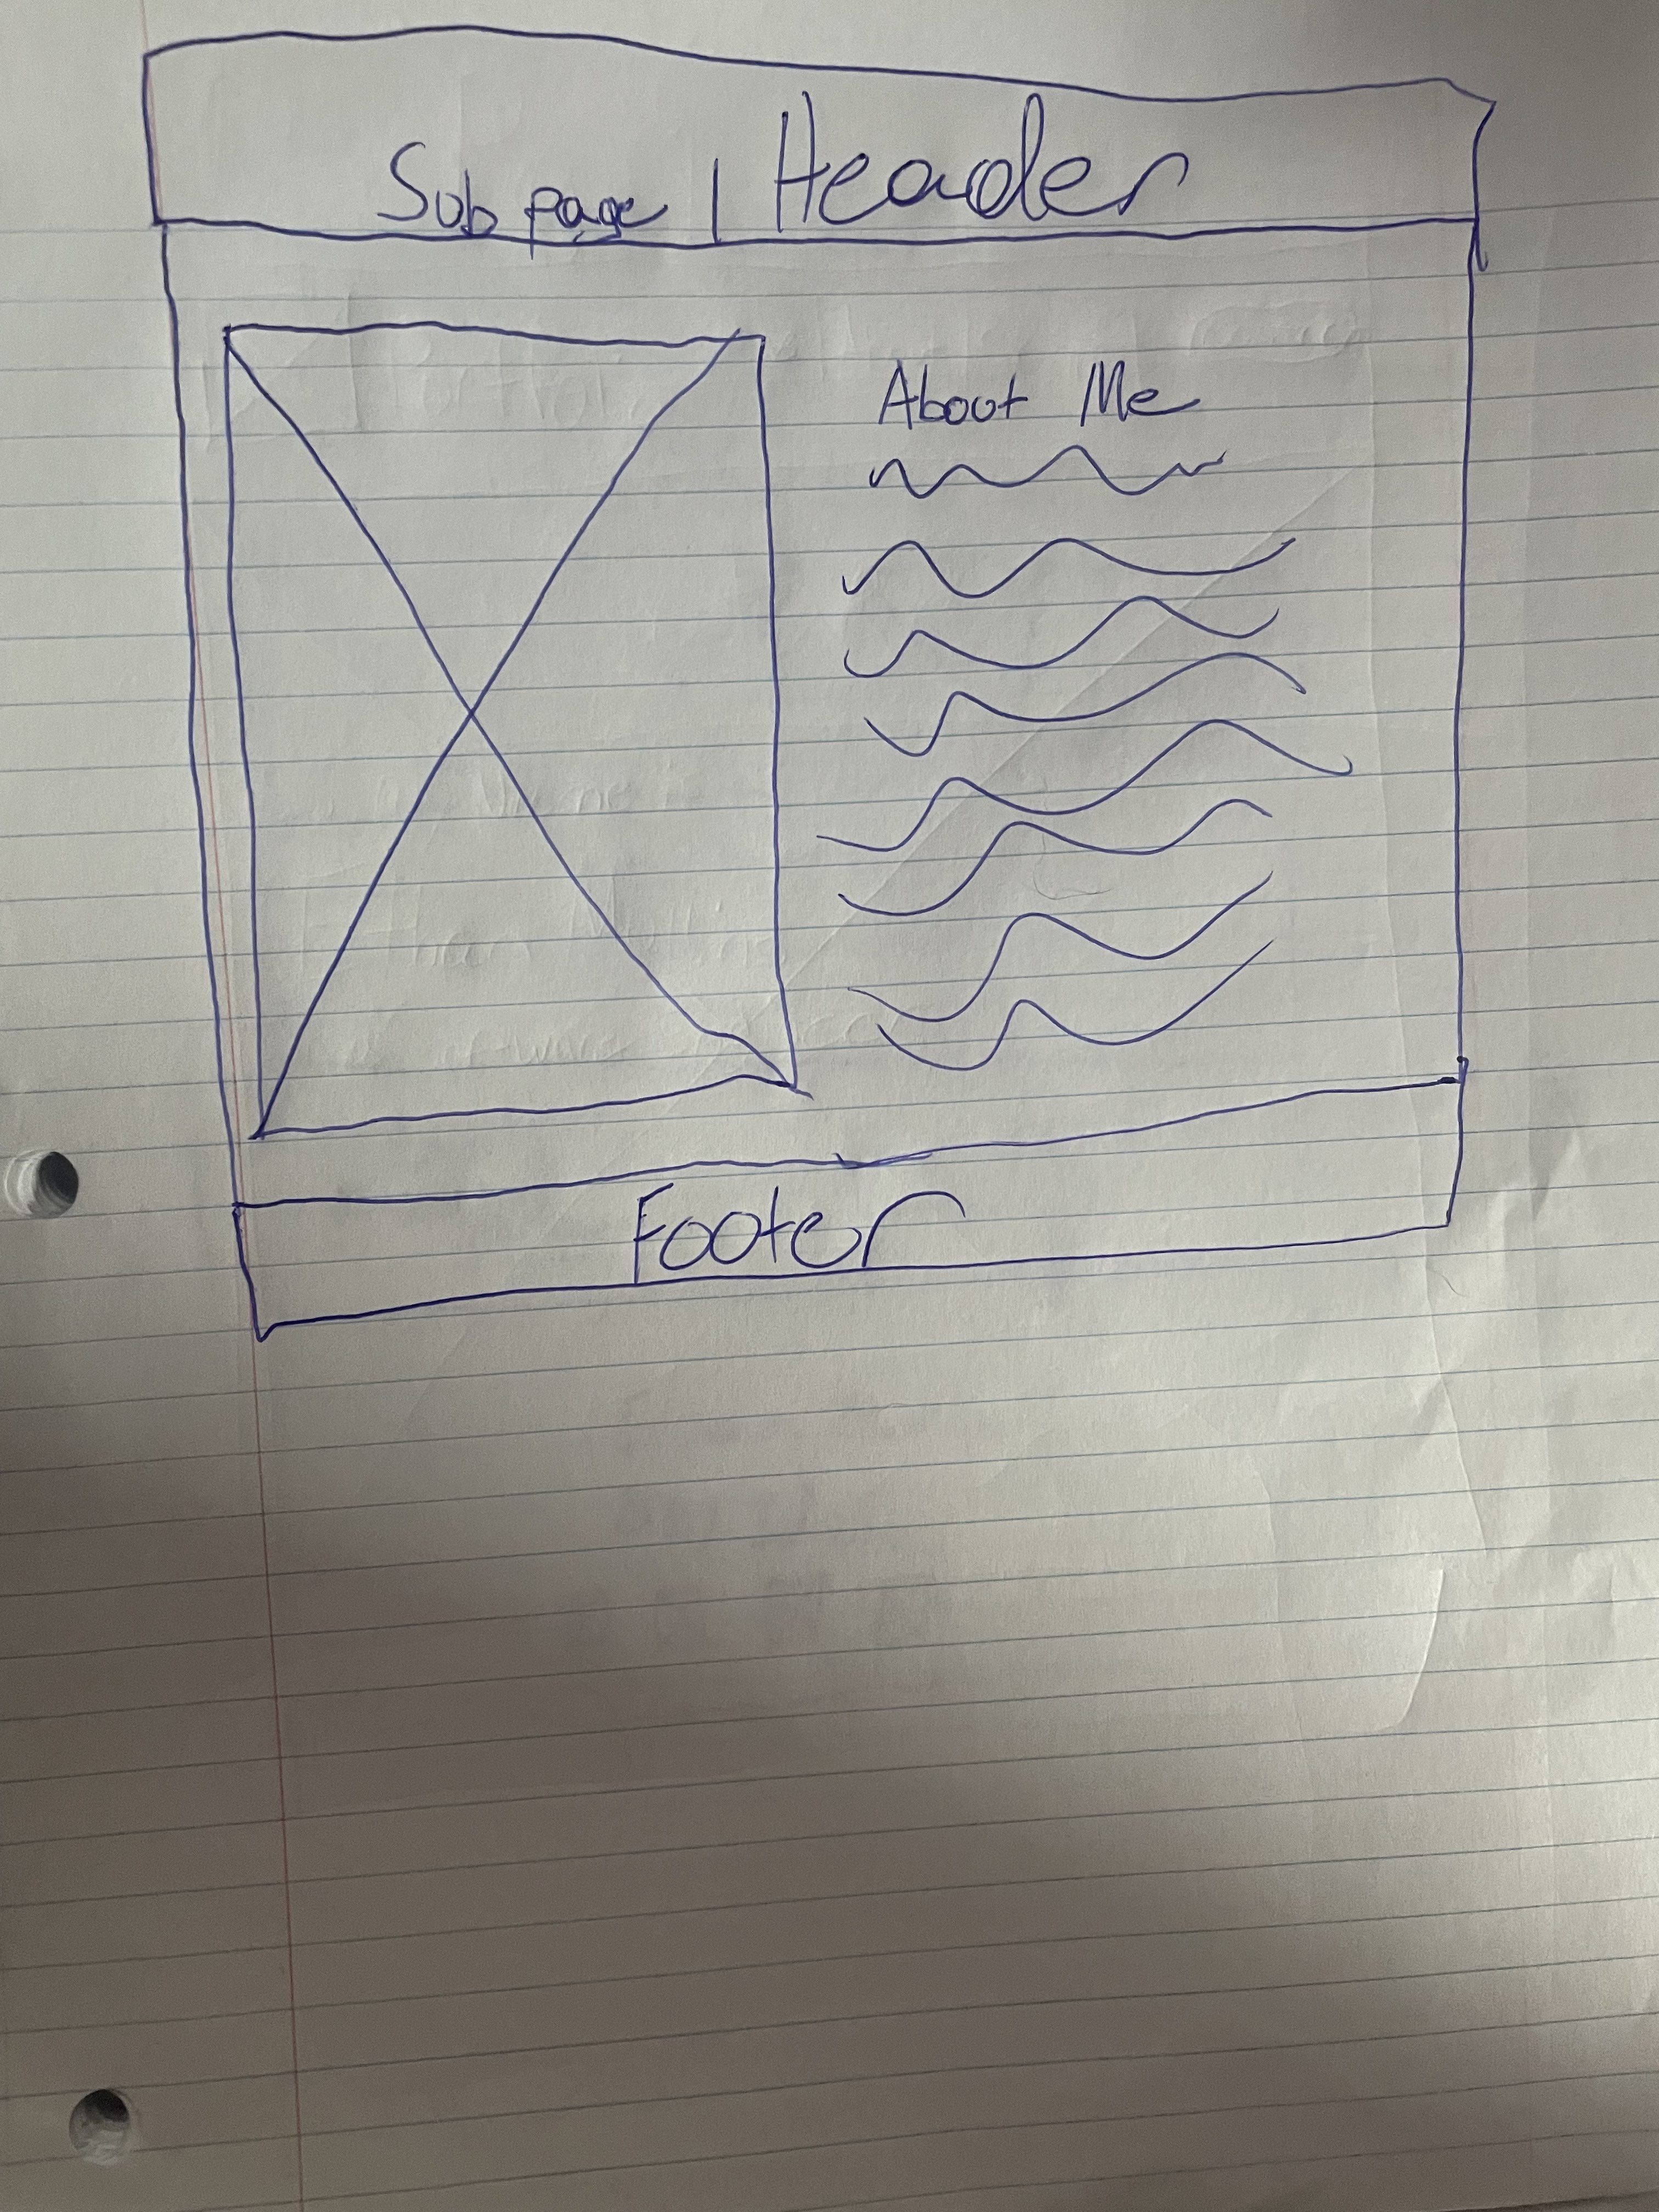 Sub page | Header
About Me
Footer